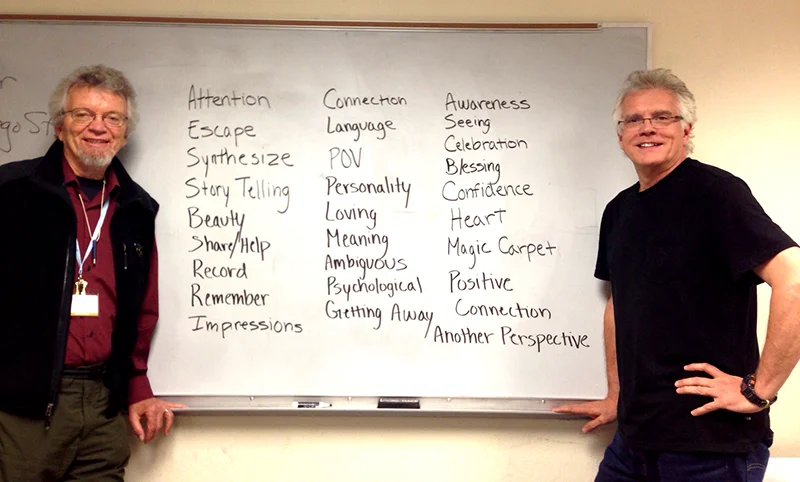 Attention
Escape
Synthesize
Story Telling
Beauty
Share/Help
Record
Remember
Impressions
Connection
Language
POV
Personality
Loving
Meaning
Ambiguous
Psychological
Getting Away
Awareness
Seeing
Celebration
Blessing
Confidence
Heart
Magic Carpet
Positive
Connection
Another Perspective